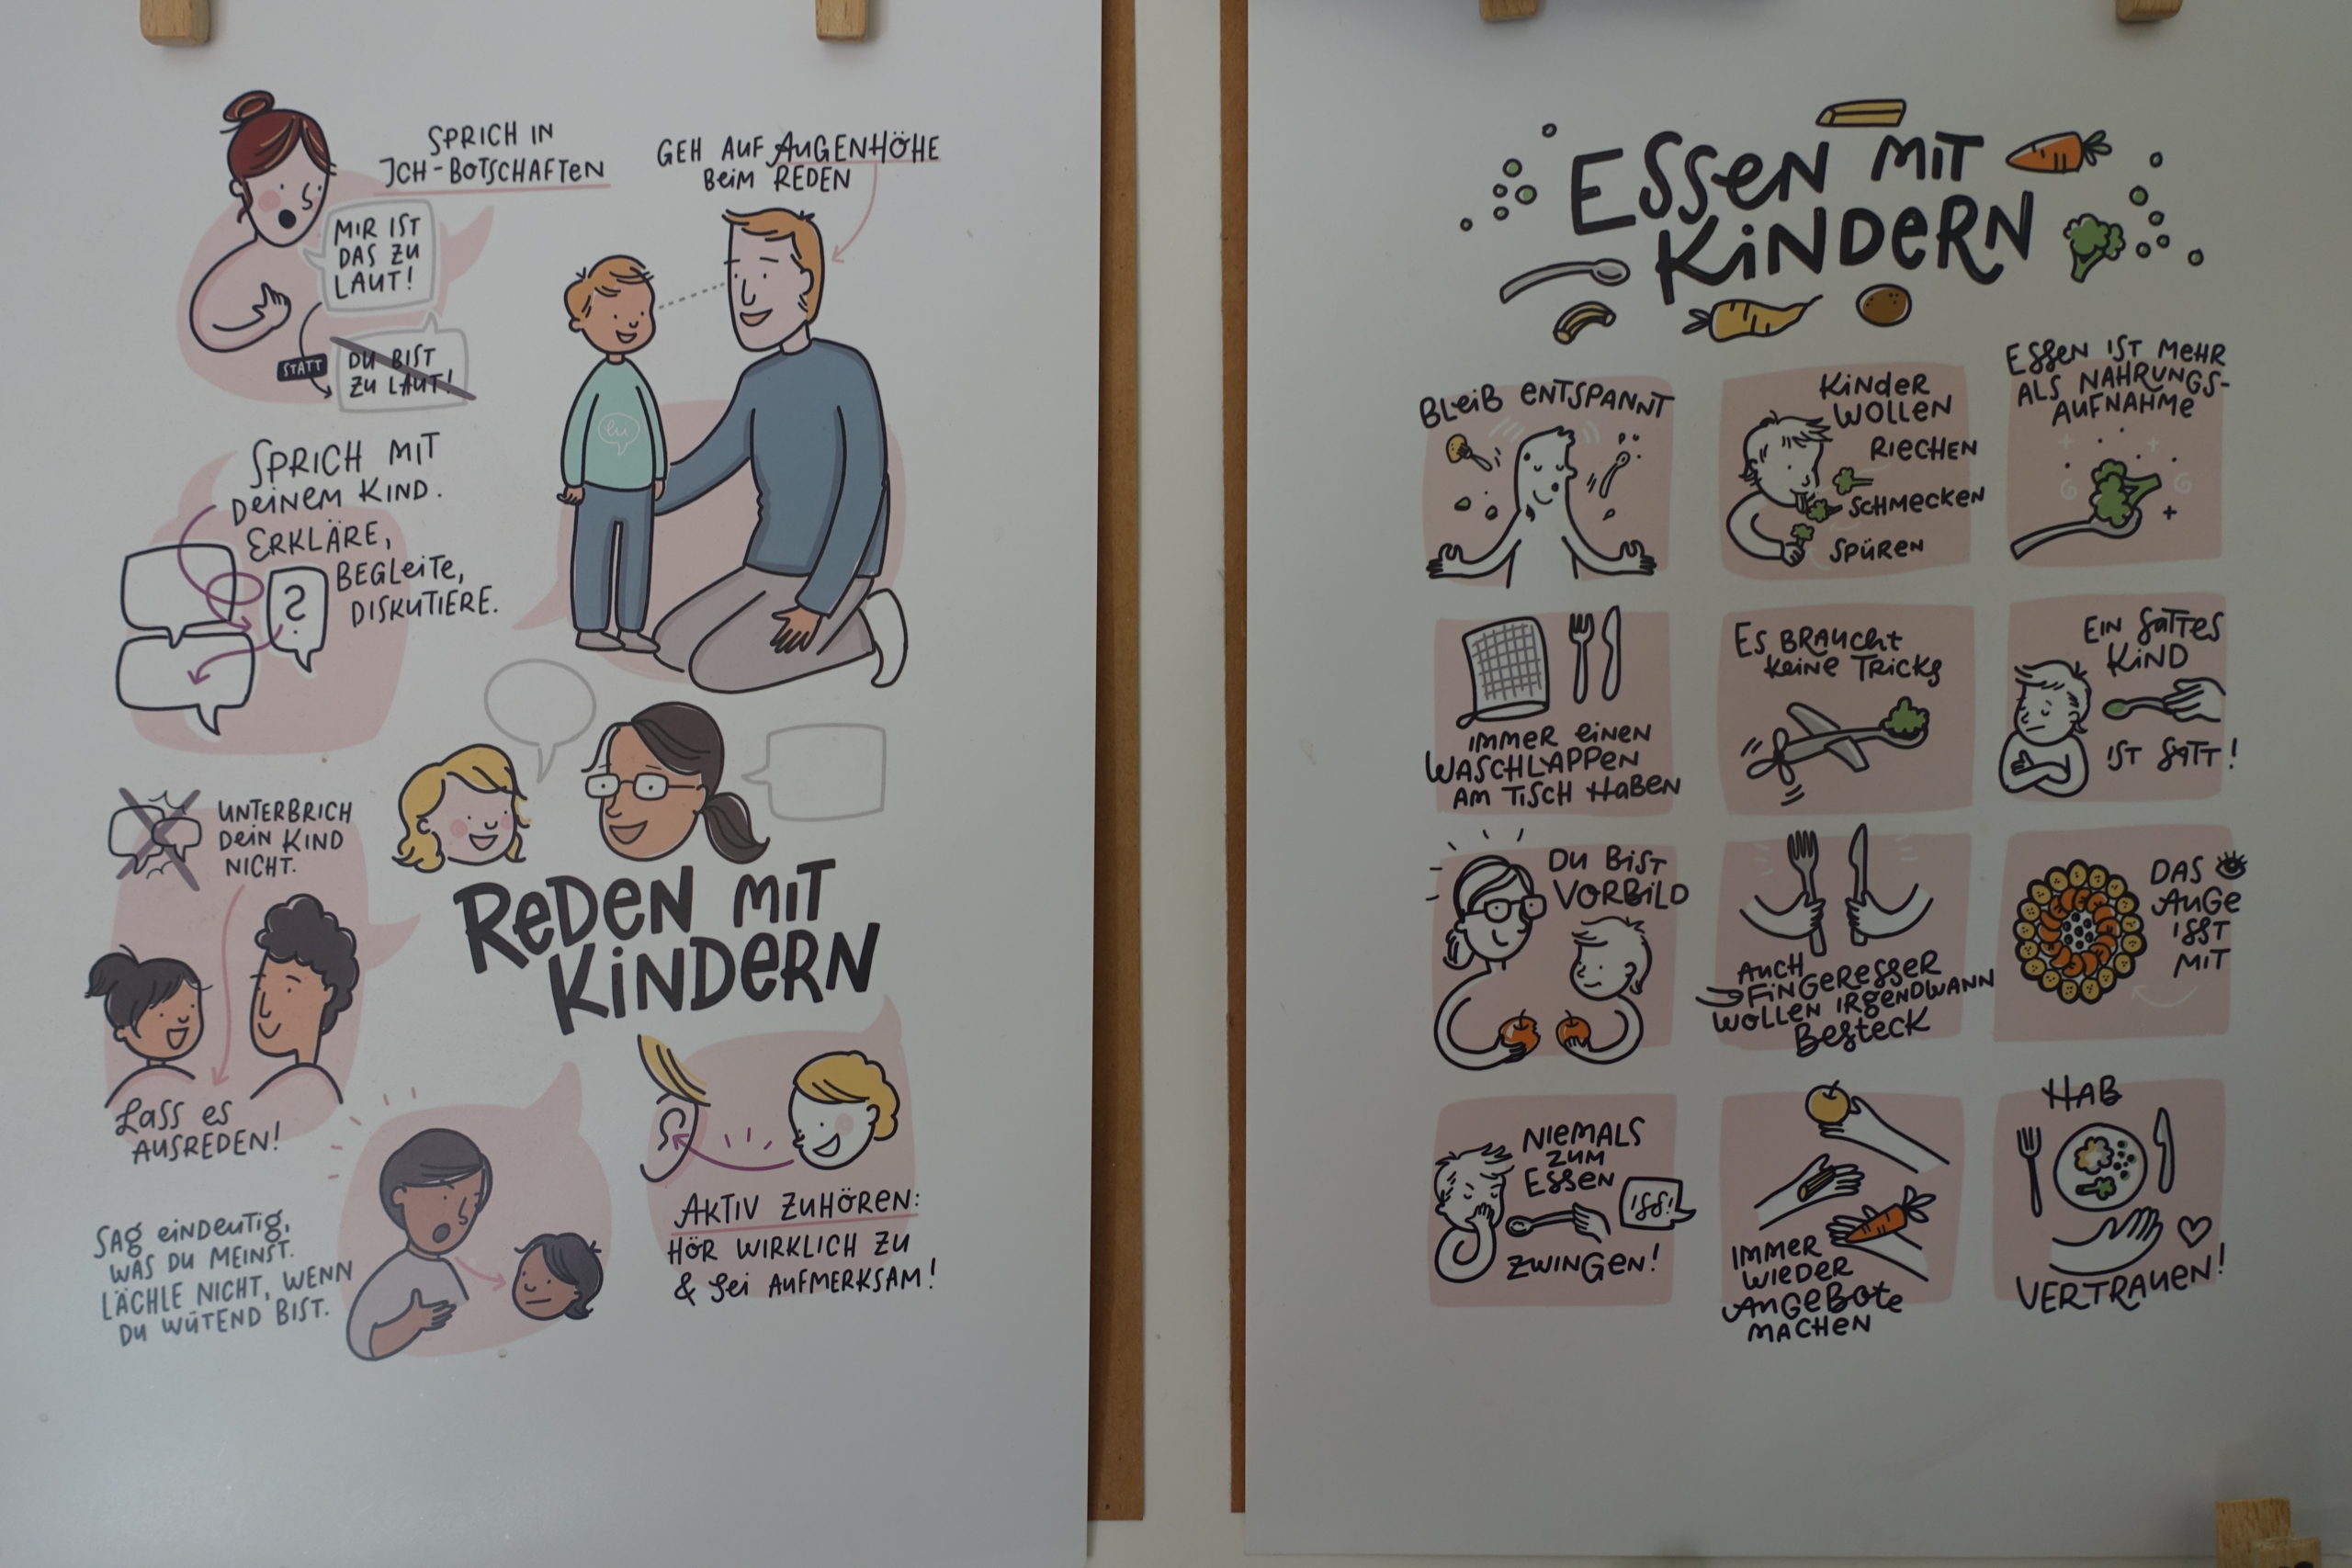 SPRICH IN
ICH-BOTSCHAFTEN
MIR IST
DAS ZU
LAUT!
STATT
DU BIST
ZU LAUT!
GEH AUF AUGENHÖHE
BEIM REDEN
SPRICH MIT
DEINEM KIND.
ERKLÄRE,
BEGLEITE,
DISKUTIERE.
?
UNTERBRICH
DEIN KIND
NICHT.
LASS ES
AUSREDEN!
REDEN MIT
KINDERN
SAG EINDEUTIG,
WAS DU MEINST.
LÄCHLE NICHT, WENN
DU WÜTEND BIST.
AKTIV ZUHÖREN:
HÖR WIRKLICH ZU
& SEI AUFMERKSAM!
ESSEN MIT
KINDERN
BLEIB ENTSPANNT
KINDER
WOLLEN
RIECHEN
SCHMECKEN
SPÜREN
ESSEN IST MEHR
ALS NAHRUNGS-
AUFNAHME
IMMER EINEN
WASCHLAPPEN
AM TISCH HABEN
ES BRAUCHT
KEINE TRICKS
EIN SATTES
KIND
IST SATT!
DU BIST
VORBILD
AUCH
FINGERESSER
WOLLEN IRGENDWANN
BESTECK
DAS
AUGE
ISST
MIT
NIEMALS
ZUM
ESSEN
ISS!
ZWINGEN!
IMMER
WIEDER
ANGEBOTE
MACHEN
HAB
VERTRAUEN!